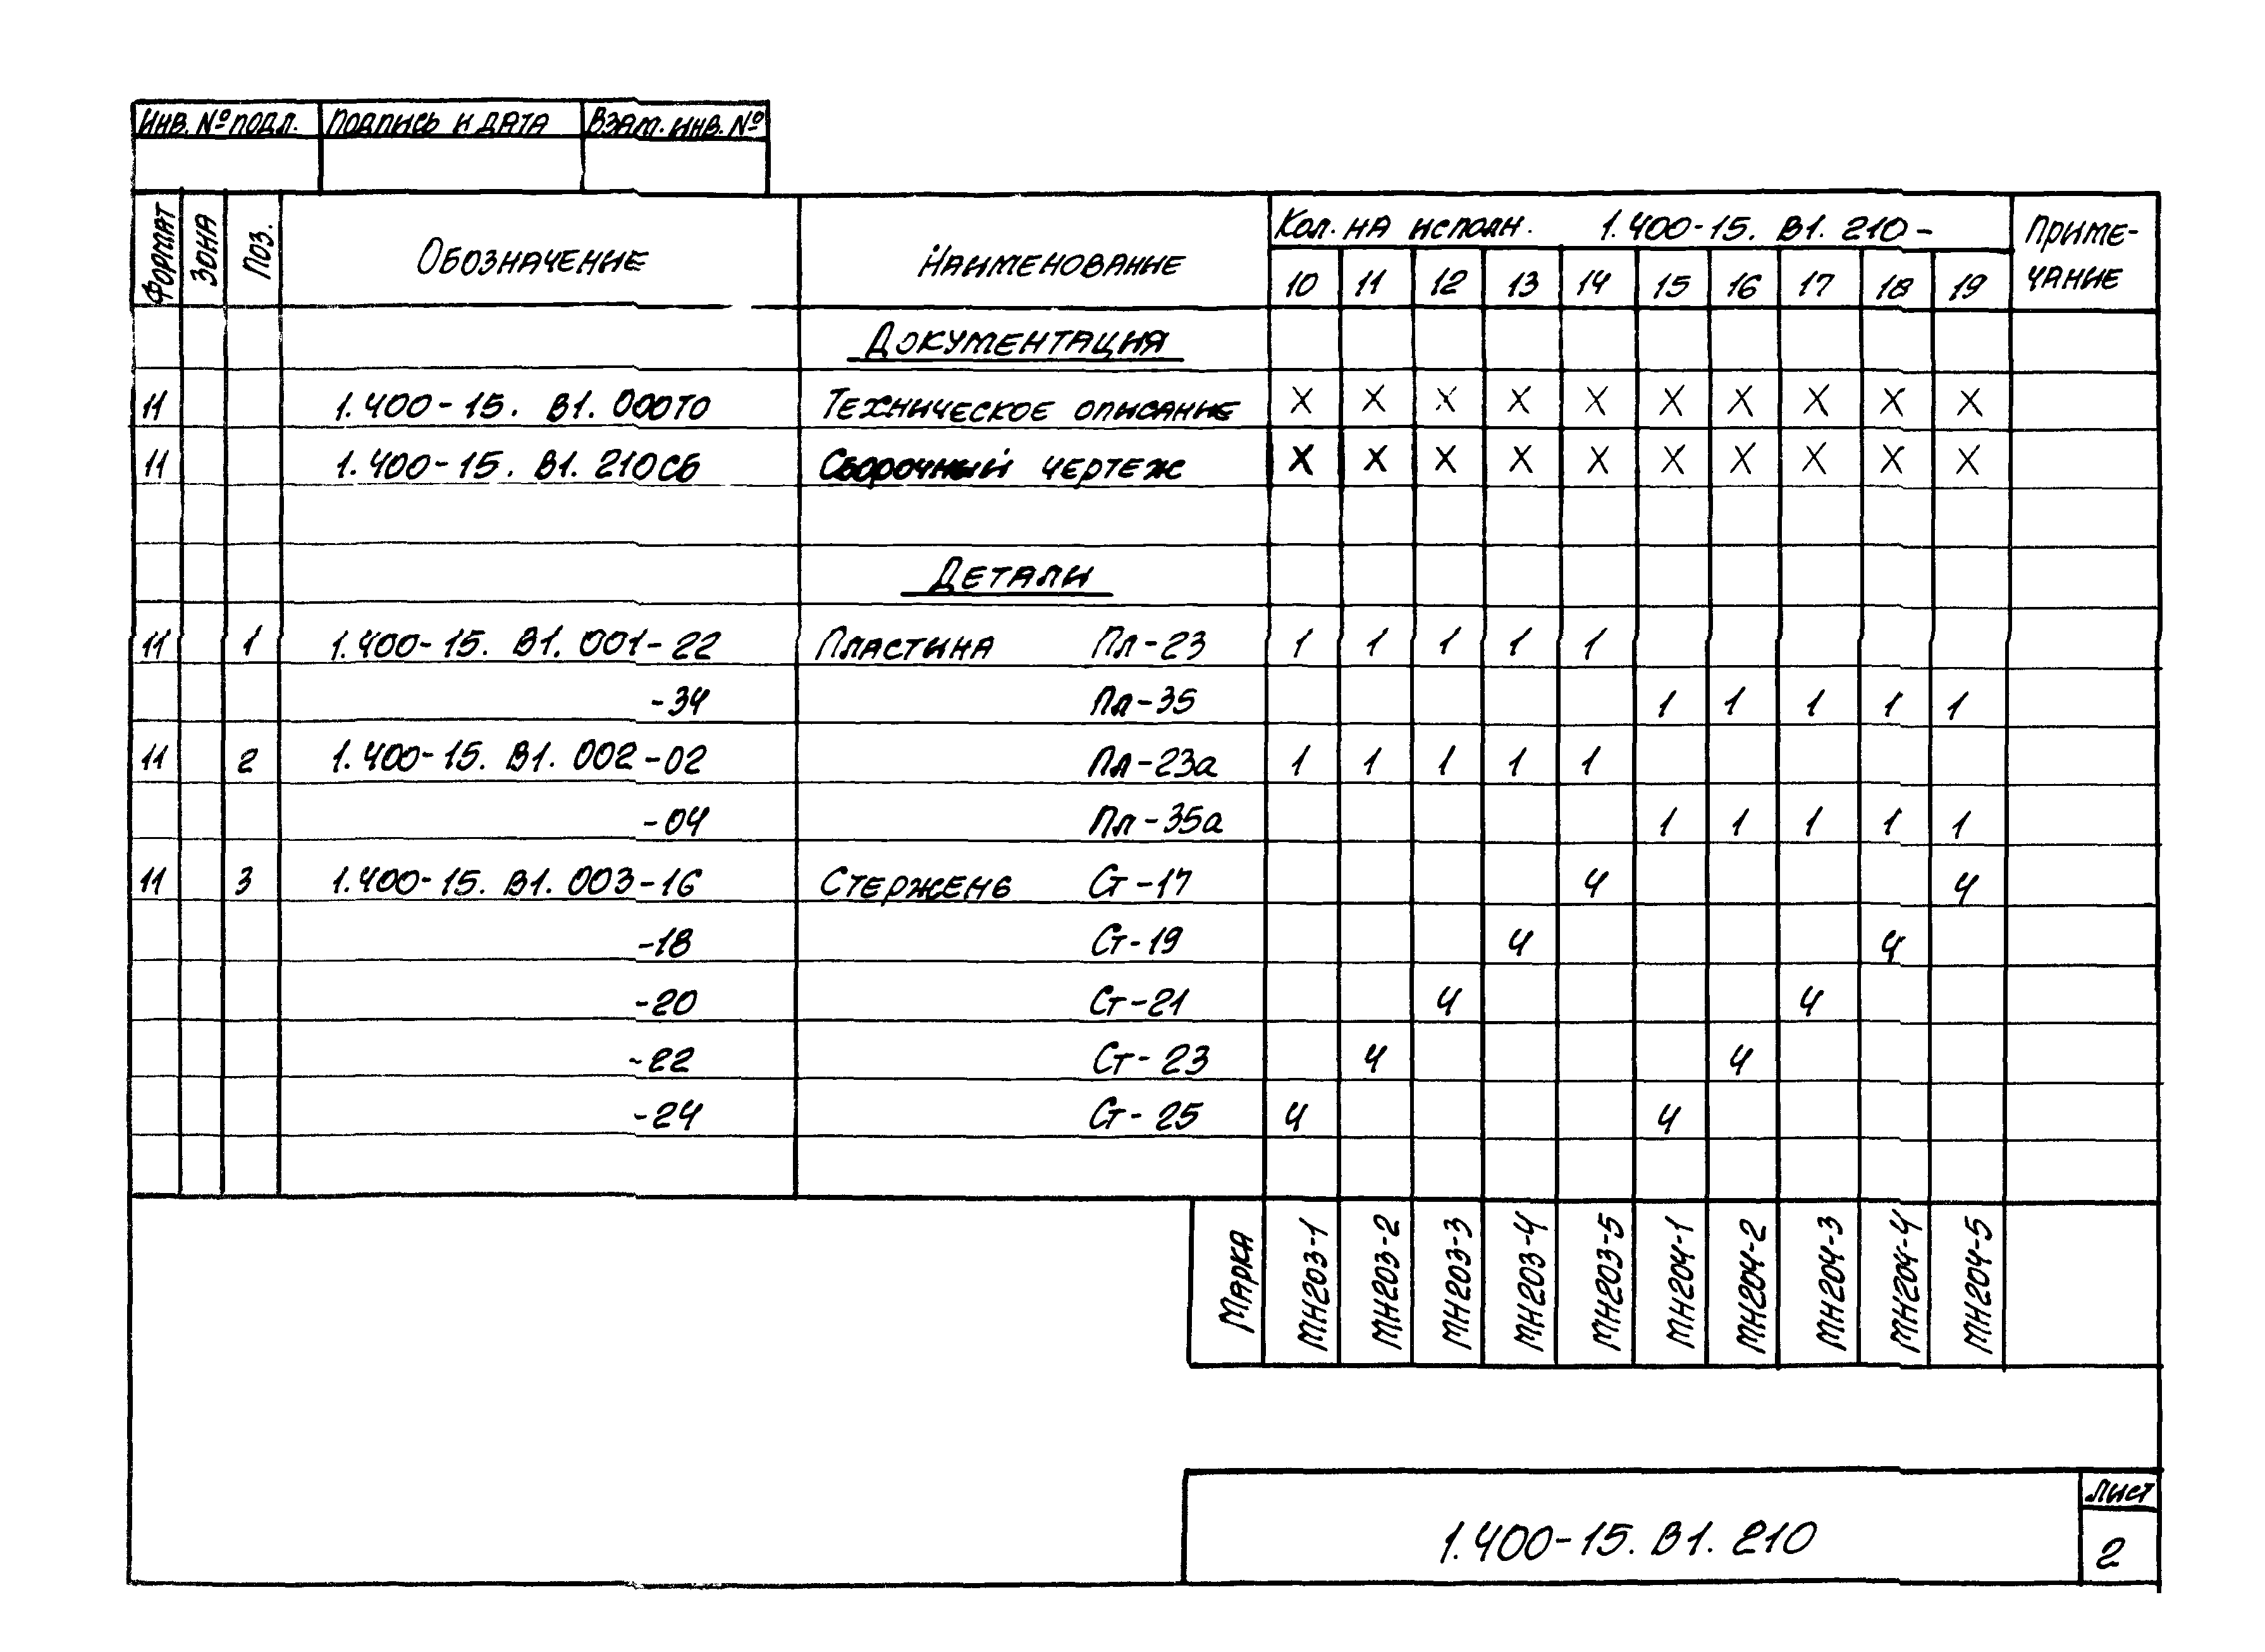 Инв. № подл. Подпись и дата Взам. инв. №
Формат Зона Поз. Обозначение Наименование Кол. на исполн. 1.400-15. В1. 210- Приме-
чание
10 11 12 13 14 15 16 17 18 19
Документация
11 1.400-15. В1. 000ТО Техническое описание X X X X X X X X X X
11 1.400-15. В1. 210СБ Сборочный чертеж X X X X X X X X X X
Детали
11 1 1.400-15. В1. 001-22 Пластина Пл-23 1 1 1 1 1
-34 Пл-35 1 1 1 1 1
11 2 1.400-15. В1. 002-02 Пл-23а 1 1 1 1 1
-04 Пл-35а 1 1 1 1 1
11 3 1.400-15. В1. 003-16 Стержень Ст-17 4 4
-18 Ст-19 4 4
-20 Ст-21 4 4
-22 Ст-23 4 4
-24 Ст-25 4 4
Марка МН203-1 МН203-2 МН203-3 МН203-4 МН203-5 МН204-1 МН204-2 МН204-3 МН204-4 МН204-5
Лист
1.400-15. В1. 210 2